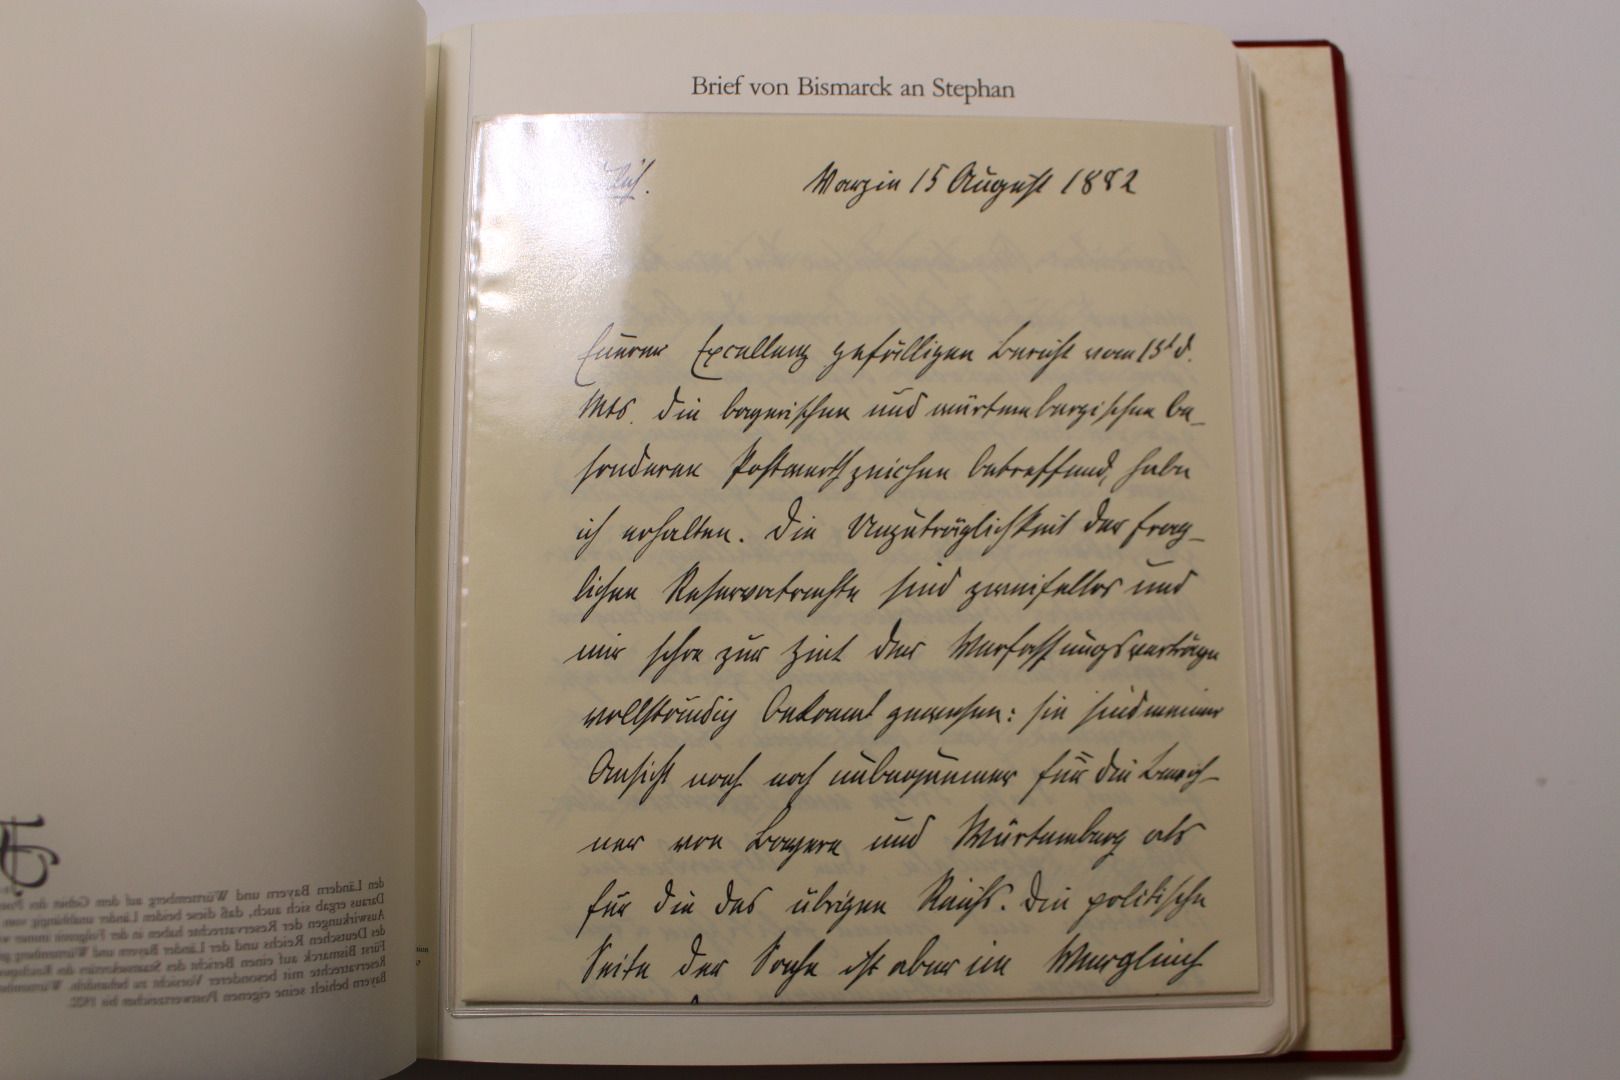 Brief von Bismarck an Stephan
Varzin 15 August 1882
Euerer Excellenz gefälligen Bericht vom 13t d.
Mts. die bayerischen und würtembergischen be-
sonderen Postwerthzeichen betreffend, habe
ich erhalten. Die Unzuträglichkeit der frag-
lichen Reservatrechte sind zweifellos und
mir schon zur Zeit der Verfassungsverträge
vollständig bekannt gewesen: sie sind meiner
Ansicht nach noch unbequemer für die Bewoh-
ner von Bayern und Würtemberg als
für die des übrigen Reichs. Die politische
Seite der Sache ist aber im Vergleich
den Ländern Bayern und Württemberg auf dem Gebiet des
Daraus ergab sich auch, daß diese beiden Länder unabhängig vom
Auswirkungen der Reservatrechte haben in der Folgezeit immer
des Deutschen Reichs und der Länder Bayern und Württemberg
Fürst Bismarck auf einen Bericht des Staatssekretärs des
Reservatrechte mit besonderer Vorsicht zu behandeln.
Bayern behielt seine eigenen Postwertzeichen bis 1920.